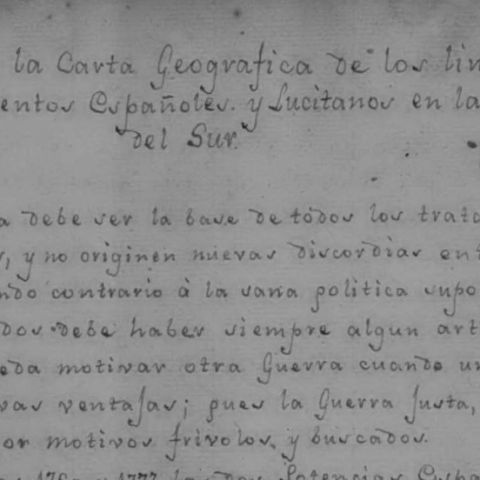 la Carta Geografica de los lin
entos Españoles. y Lucitanos en la
del Sur.
a debe ser la base de todos los trata
s, y no originen nuevas discordias ent
ndo contrario à la sana politica supo
dos debe haber siempre algun art
eda motivar otra Guerra cuando un
vas ventajas; pues la Guerra justa,
or motivos frivolos, y buscados.
1777 las dos Potencias Espa